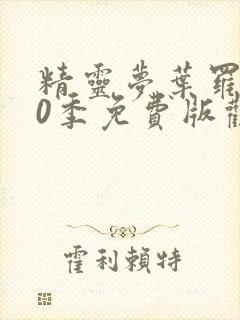 精靈夢葉羅
0季免費版觀
霍利賴特